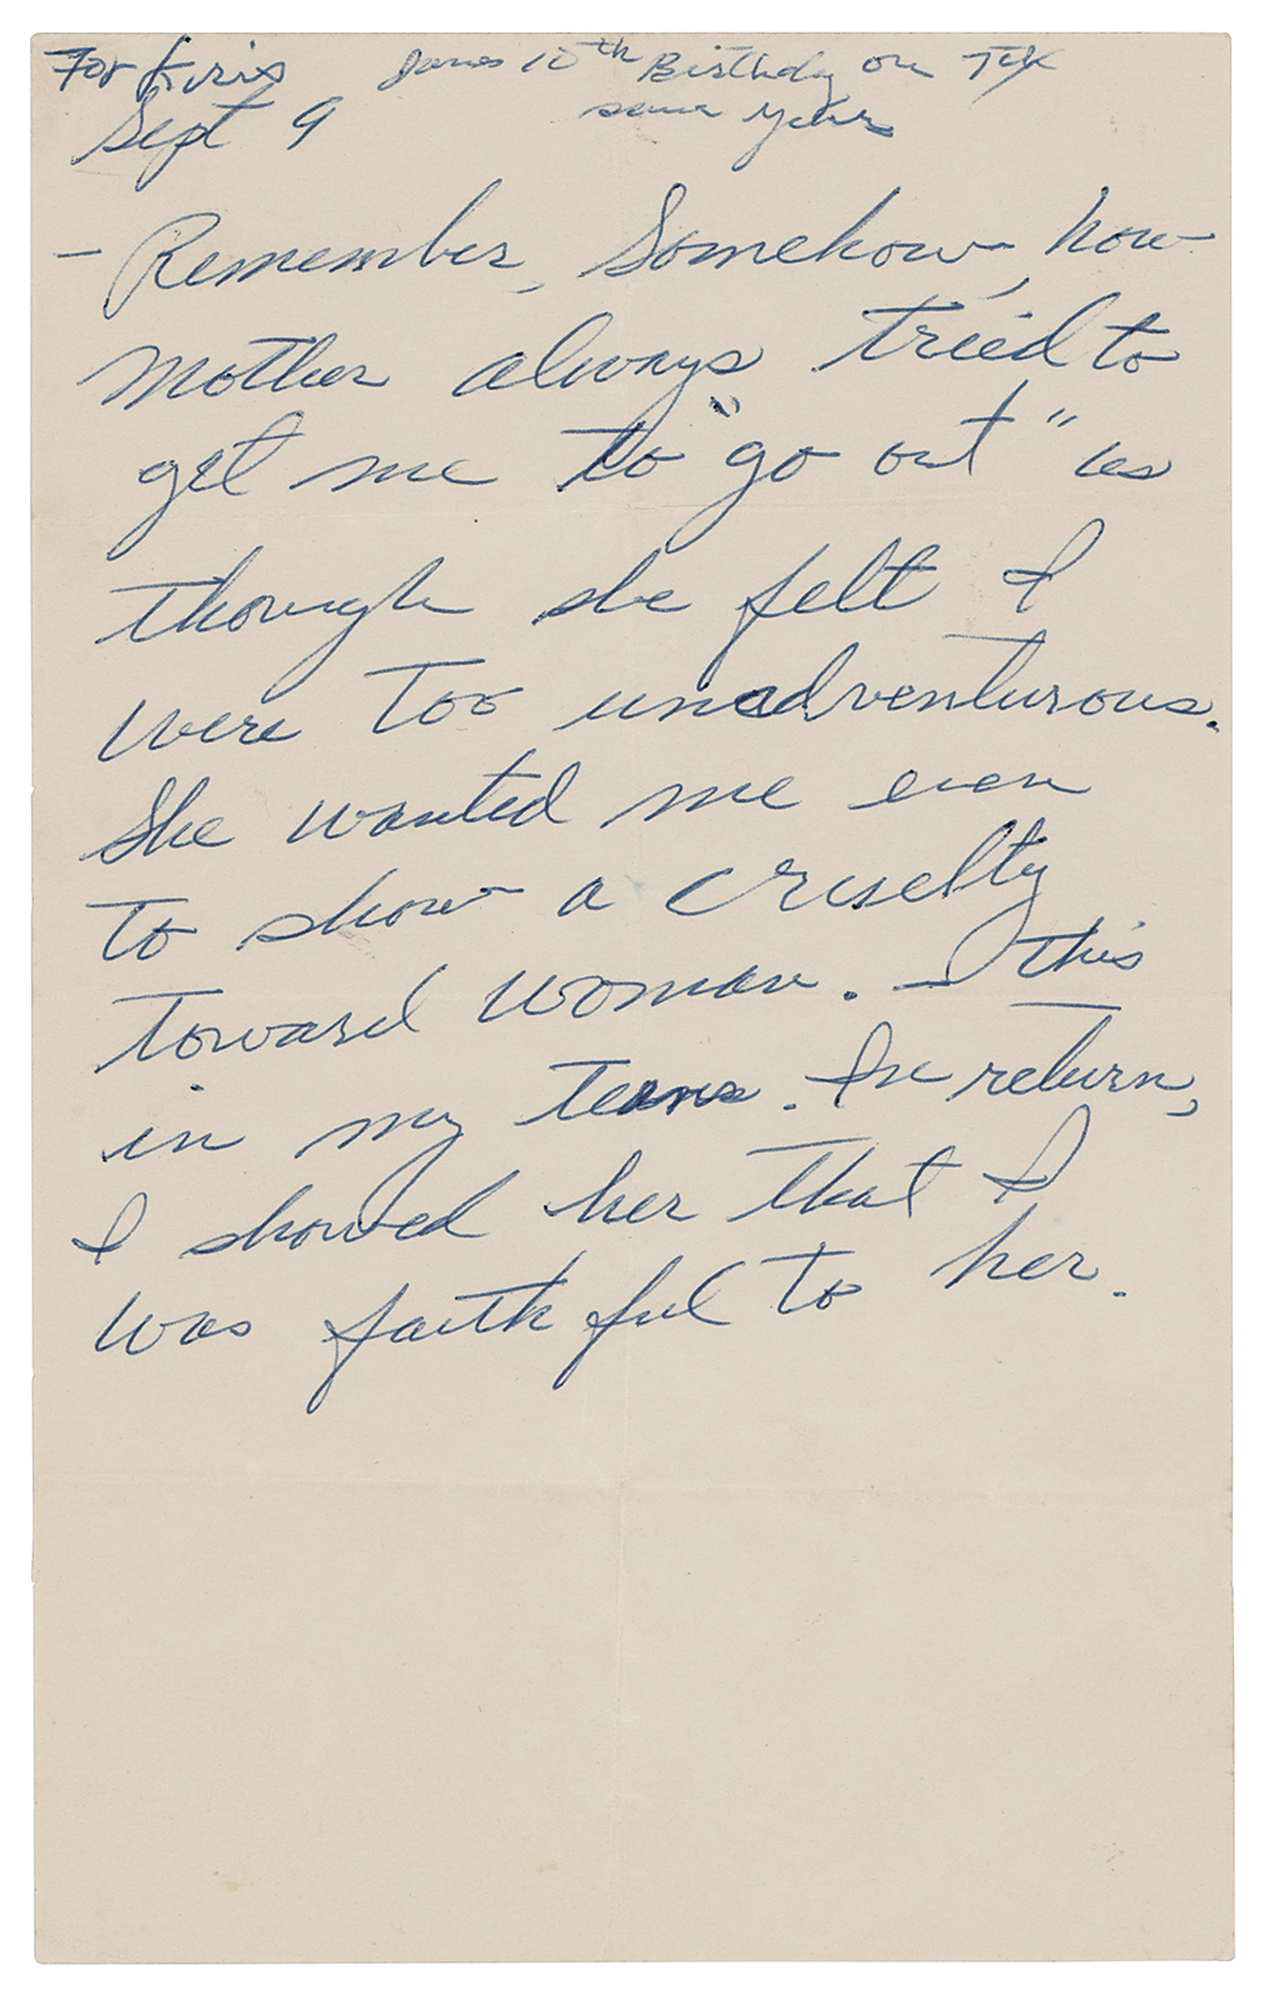 For Kris James 10th Birthday on TX
Sept 9 same year
– Remember, Somehow, how
Mother always tried to
get me to "go out" as
though she felt I
were too unadventurous.
She wanted me even
to show a cruelty
toward woman. – This
in my teens. In return,
I showed her that I
was faithful to her.